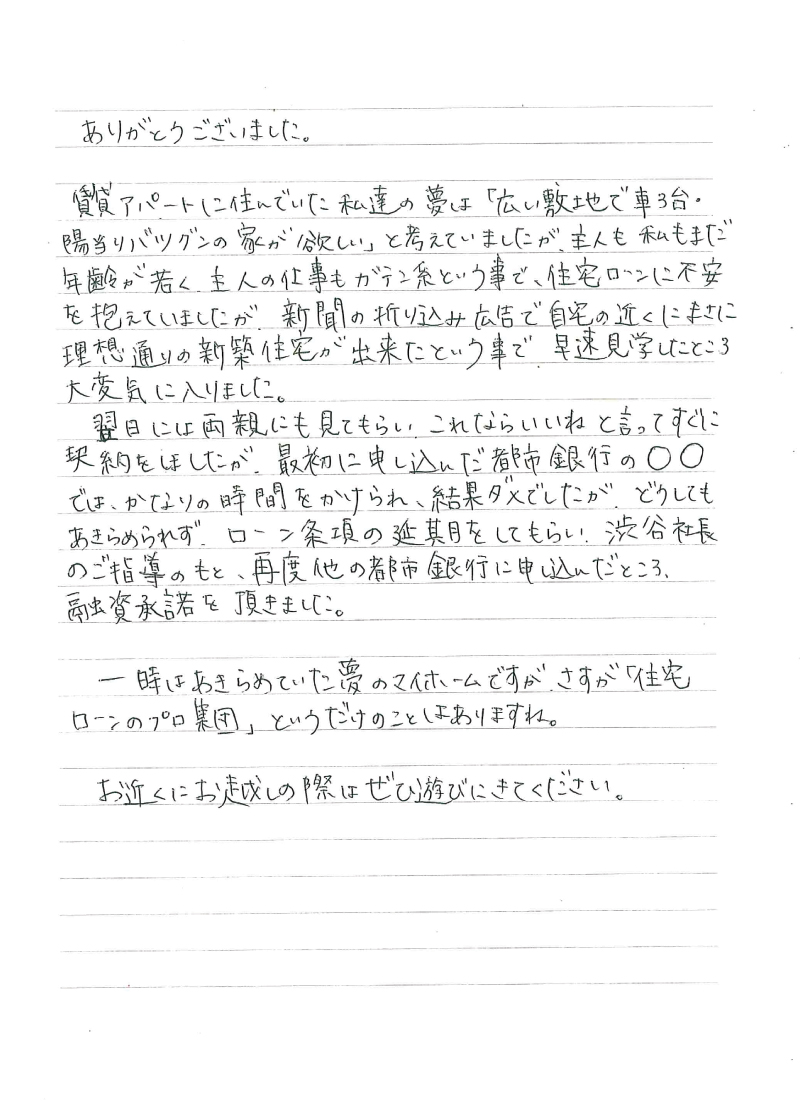 ありがとうございました。
賃貸アパートに住んでいた私達の夢は「広い敷地で車3台・
陽当りバツグンの家が欲しい」と考えていましたが、主人も私もまだ
年齢が若く、主人の仕事もガテン系という事で、住宅ローンに不安
を抱えていましたが、新聞の折り込み広告で自宅の近くにまさに
理想通りの新築住宅が出来たという事で、早速見学したところ
大変気に入りました。
翌日には両親にも見てもらい、これならいいねと言ってすぐに
契約をしましたが、最初に申し込んだ都市銀行の〇〇
では、かなりの時間をかけられ、結果ダメでしたが、どうしても
あきらめられず、ローン条項の延期をしてもらい、渋谷社長
のご指導のもと、再度他の都市銀行に申し込んだところ、
融資承諾を頂きました。
一時はあきらめていた夢のマイホームですが、さすが「住宅
ローンのプロ集団」というだけのことはありますね。
お近くにお越しの際はぜひ遊びにきてください。